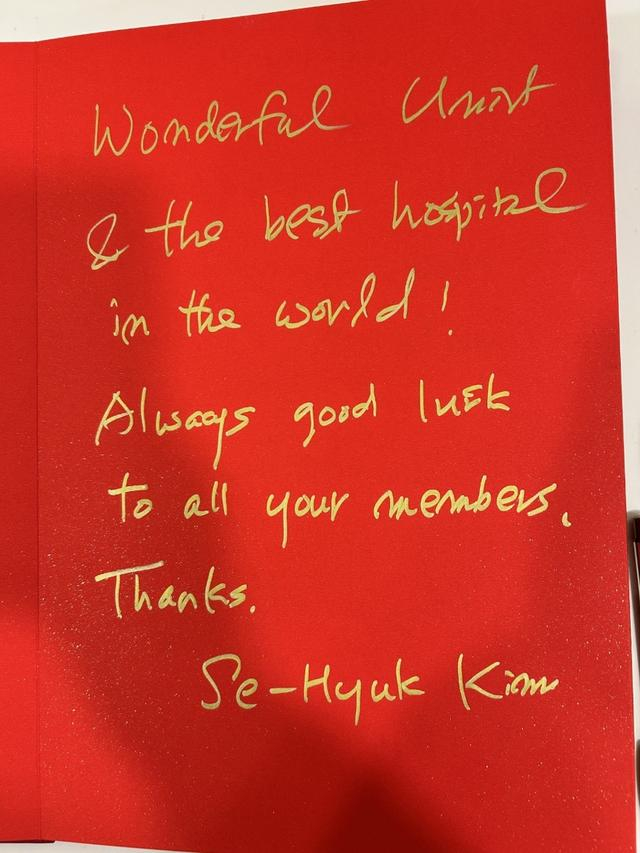 Wonderful
& the best hospital
in the world!
Always good luck
to all your members.
Thanks.
Se-Hyuk Kim